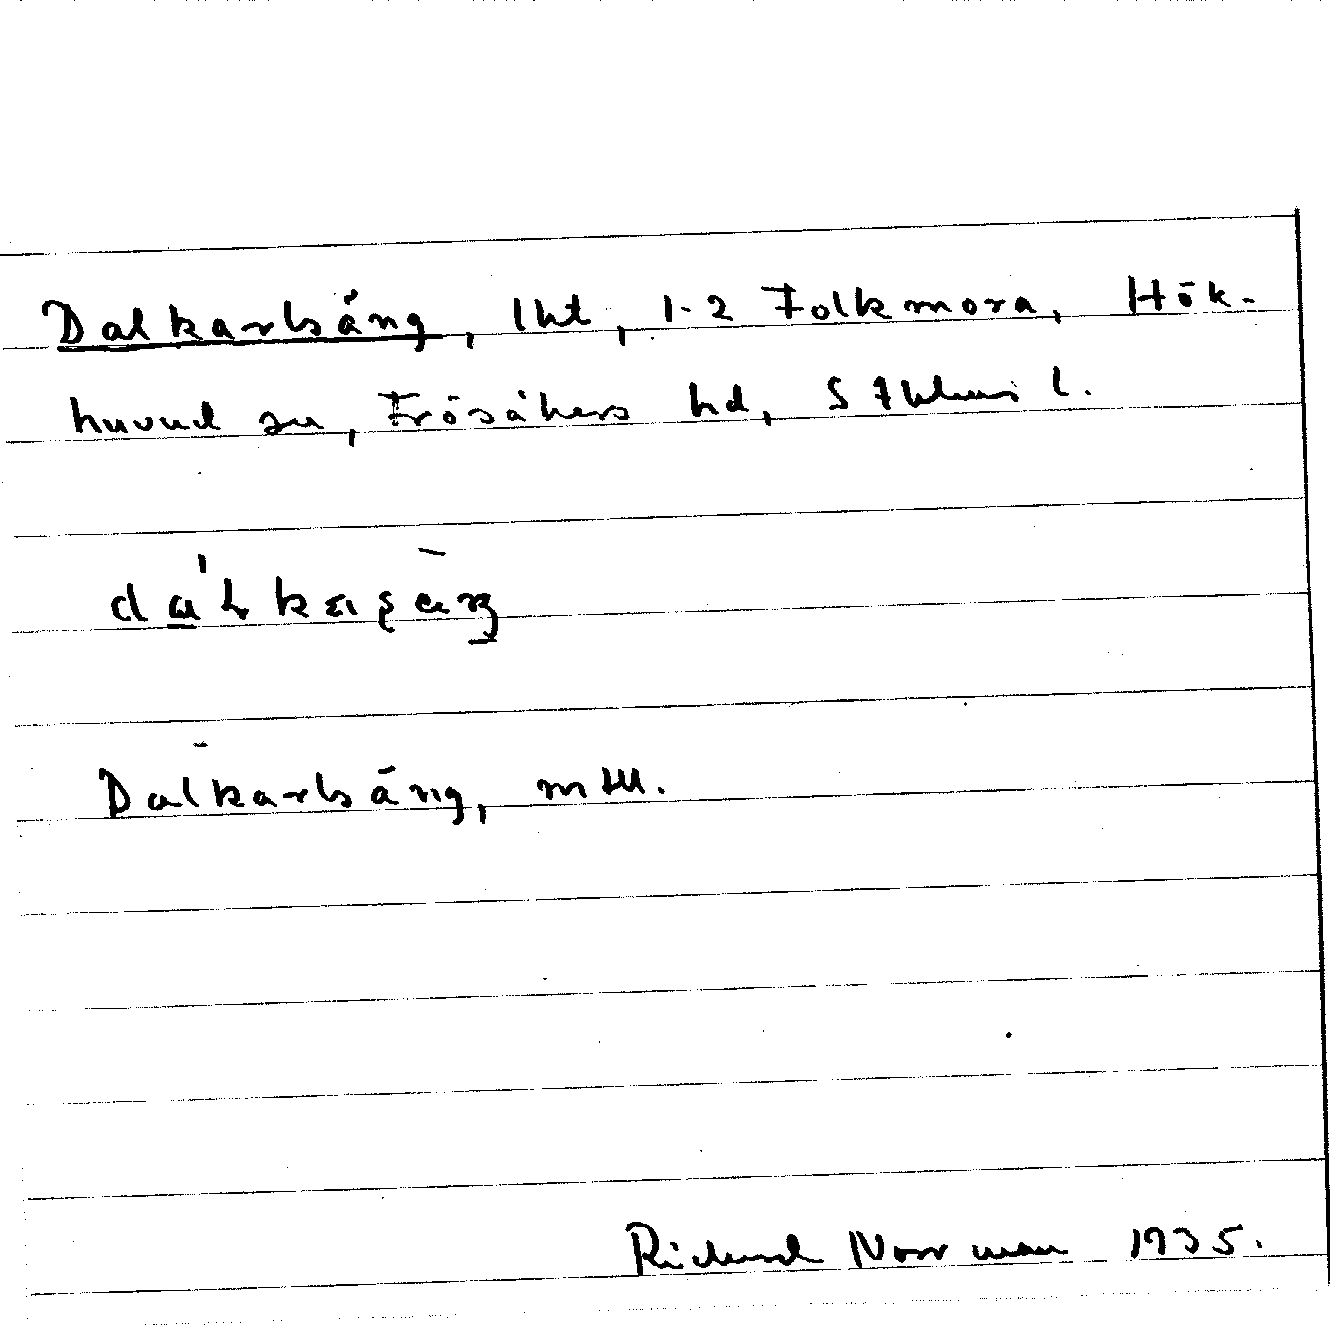 Dalkarlsäng, lht, 1-2 Folkmora, Hök-
huvud sn, Frösåkers hd, Sthlms l.
Dalkarlsäng, mtll.
Richard Norrman 1935.